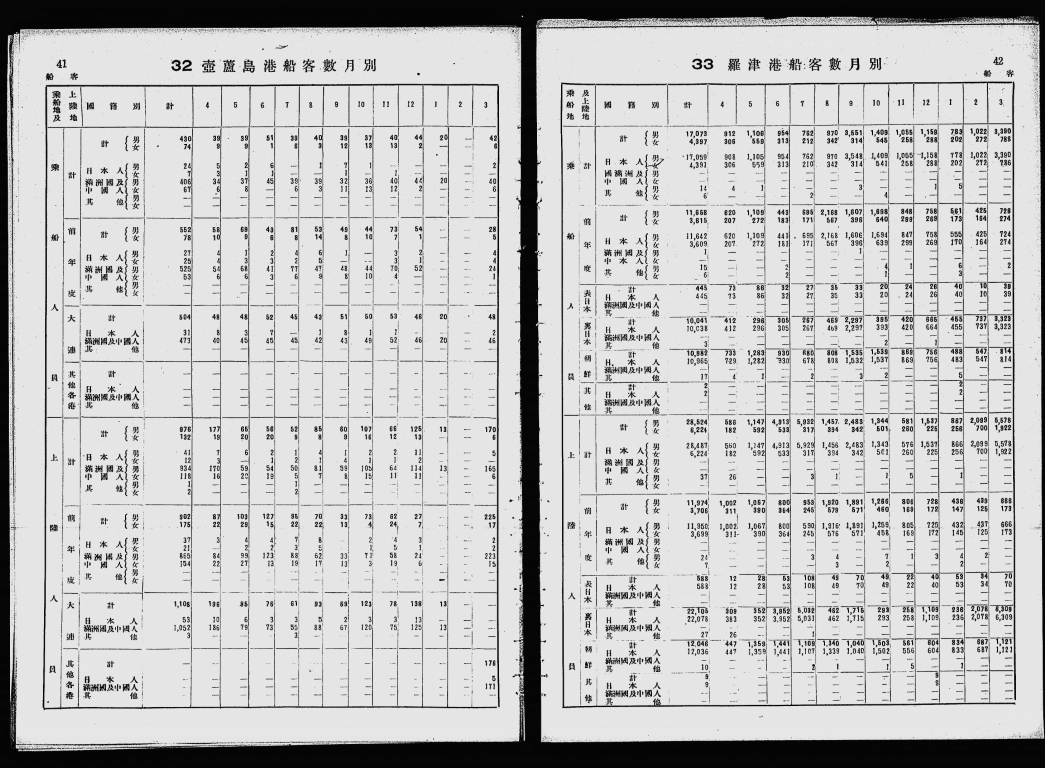 41
32 壺蘆島港船客數月別
船客
乘船地及 上陸地 國籍別 計 4 5 6 7 8 9 10 11 12 1 2 3
乘船人員 計 計 男 430 39 39 51 39 40 39 37 40 44 20 — 42
女 74 9 9 1 6 3 12 13 13 2 — — 6
日本人 男 24 5 2 6 — 1 7 1 — — — — 2
女 7 3 1 1 — — 1 — 1 — — — —
滿洲國及中國人 男 406 34 37 45 39 39 32 36 40 44 20 — 40
女 67 6 8 — 6 3 11 13 12 2 — — 6
其他 男 — — — — — — — — — — — — —
女 — — — — — — — — — — — — —
前年度 計 男 552 58 69 43 81 53 49 44 73 54 — — 28
女 78 10 9 6 8 14 8 10 7 1 — — 5
日本人 男 27 4 1 2 4 6 1 — 3 2 — — 4
女 25 4 3 3 2 5 — — 3 1 — — 4
滿洲國及中國人 男 525 54 68 41 77 47 48 44 70 52 — — 24
女 53 6 6 3 6 9 8 10 4 — — — 1
其他 男 — — — — — — — — — — — — —
女 — — — — — — — — — — — — —
大連 計 504 48 48 52 45 43 51 50 53 46 20 — 48
日本人 31 8 3 7 — 1 8 1 1 — — — 2
滿洲國及中國人 473 40 45 45 45 42 43 49 52 46 20 — 46
其他 — — — — — — — — — — — — —
其他各港 計 — — — — — — — — — — — — —
日本人 — — — — — — — — — — — — —
滿洲國及中國人 — — — — — — — — — — — — —
其他 — — — — — — — — — — — — —
上陸人員 計 計 男 976 177 66 56 52 85 60 107 66 125 13 — 170
女 132 19 20 20 9 8 9 16 12 13 — — 6
日本人 男 41 7 6 2 1 4 1 2 2 11 — — 5
女 12 3 — 1 2 1 4 1 1 2 — — —
滿洲國及中國人 男 934 170 59 54 50 81 59 105 64 114 13 — 165
女 118 16 20 19 5 7 8 15 11 11 — — 6
其他 男 1 — — — 1 — — — — — — — —
女 2 — — — 2 — — — — — — — —
前年度 計 男 902 87 103 127 95 70 33 73 62 27 — — 225
女 175 22 29 15 22 22 13 4 24 7 — — 17
日本人 男 37 3 4 4 7 8 — 2 4 3 — — 2
女 21 — 2 2 3 5 — 1 5 1 — — 2
滿洲國及中國人 男 865 84 99 123 88 62 33 71 58 24 — — 223
女 154 22 27 13 19 17 13 3 19 6 — — 15
其他 男 — — — — — — — — — — — — —
女 — — — — — — — — — — — — —
大連 計 1,108 196 85 76 61 93 69 123 78 138 13
日本人 53 10 6 3 3 5 2 3 3 13 — —
滿洲國及中國人 1,052 186 79 73 55 88 67 120 75 125 13 —
其他 3 — — — 3 — — — — — — — —
其他各港 計 176
日本人 5
滿洲國及中國人 171
其他 — — — — — — — — — — — — —
42
33 羅津港船客數月別
船客
乘船地 及上陸地 國籍別 計 4 5 6 7 8 9 10 11 12 1 2 3
乘船人員 計 計 男 17,073 912 1,106 954 762 970 3,551 1,409 1,055 1,159 783 1,022 3,390
女 4,397 306 559 313 212 342 314 545 258 288 202 272 786
日本人 男 17,059 908 1,105 954 762 970 3,548 1,409 1,055 1,158 778 1,022 3,390
女 4,391 306 559 313 210 342 314 541 258 288 202 272 786
滿洲國及中國人 男 — — — — — — — — — — — — —
女 — — — — — — — — — — — — —
其他 男 14 4 1 — — — 3 — — 1 5 — —
女 6 — — — 2 — — 4 — — — — —
前年度 計 男 11,658 620 1,109 443 695 2,168 1,607 1,698 848 758 561 425 726
女 3,615 207 272 183 171 567 396 640 299 269 173 164 274
日本人 男 11,642 620 1,109 441 695 2,168 1,606 1,694 847 758 555 425 724
女 3,609 207 272 181 171 567 396 639 299 269 170 164 274
滿洲國及中國人 男 1 — — — — — 1 — — — — — —
女 — — — — — — — — — — — — —
其他 男 15 — — 2 — — — 4 1 — 6 — 2
女 6 — — 2 — — — 1 — — 3 — —
表日本 計 445 73 86 32 27 35 33 20 24 26 40 10 39
日本人 445 73 86 32 27 35 33 20 24 26 40 10 39
滿洲國及中國人 — — — — — — — — — — — — —
其他 — — — — — — — — — — — — —
裏日本 計 10,041 412 296 305 267 469 2,297 395 420 665 455 737 3,323
日本人 10,038 412 296 305 267 469 2,297 393 420 664 455 737 3,323
滿洲國及中國人 — — — — — — — — — — — — —
其他 3 — — — — — — 2 — 1 — — —
朝鮮 計 10,982 733 1,283 930 680 808 1,535 1,539 869 756 488 547 814
日本人 10,965 729 1,282 930 678 808 1,532 1,537 869 756 483 547 814
滿洲國及中國人 — — — — — — — — — — — — —
其他 17 4 1 — 2 — 3 2 — — 5 — —
其他 計 2 — — — — — — — — — 2 — —
日本人 2 — — — — — — — — — 2 — —
滿洲國及中國人 — — — — — — — — — — — — —
其他 — — — — — — — — — — — — —
上陸人員 計 計 男 28,524 586 1,147 4,913 5,932 1,457 2,483 1,344 581 1,537 867 2,099 5,578
女 6,224 182 592 533 317 394 342 501 260 225 256 700 1,922
日本人 男 28,487 560 1,147 4,913 5,929 1,456 2,483 1,343 576 1,537 866 2,099 5,578
女 6,224 182 592 533 317 394 342 501 260 225 256 700 1,922
滿洲國及中國人 男 — — — — — — — — — — — — —
女 — — — — — — — — — — — — —
其他 男 37 26 — — 3 1 — 1 5 — 1 — —
女 — — — — — — — — — — — — —
前年度 計 男 11,974 1,002 1,067 800 953 1,920 1,891 1,266 806 728 436 439 666
女 3,706 311 390 364 245 579 571 460 169 172 147 125 173
日本人 男 11,950 1,002 1,067 800 590 1,916 1,891 1,259 805 725 432 437 666
女 3,699 311 390 364 245 576 571 458 169 172 145 125 173
滿洲國及中國人 男 — — — — — — — — — — — — —
女 — — — — — — — — — — — — —
其他 男 24 — — — 3 4 — 7 1 3 4 2 —
女 7 — — — — 3 — 2 — — 2 — —
表日本 計 588 12 28 53 108 49 70 49 22 40 53 34 70
日本人 588 12 28 53 108 49 70 49 22 40 53 34 70
滿洲國及中國人 — — — — — — — — — — — — —
其他 — — — — — — — — — — — — —
裏日本 計 22,105 309 352 3,952 5,032 462 1,715 293 258 1,109 236 2,078 6,309
日本人 22,078 383 352 3,952 5,031 462 1,715 293 258 1,109 236 2,078 6,309
滿洲國及中國人 — — — — — — — — — — — — —
其他 27 26 — — 1 — — — — — — — —
朝鮮 計 12,046 447 1,359 1,441 1,109 1,340 1,040 1,503 561 604 834 687 1,121
日本人 12,036 447 1,359 1,441 1,107 1,339 1,040 1,502 556 604 833 687 1,121
滿洲國及中國人 — — — — — — — — — — — — —
其他 10 — — — 2 1 — 1 5 — 1 — —
其他 計 9 — — — — — — — — 9 — — —
日本人 9 — — — — — — — — 9 — — —
滿洲國及中國人 — — — — — — — — — — — — —
其他 — — — — — — — — — — — — —